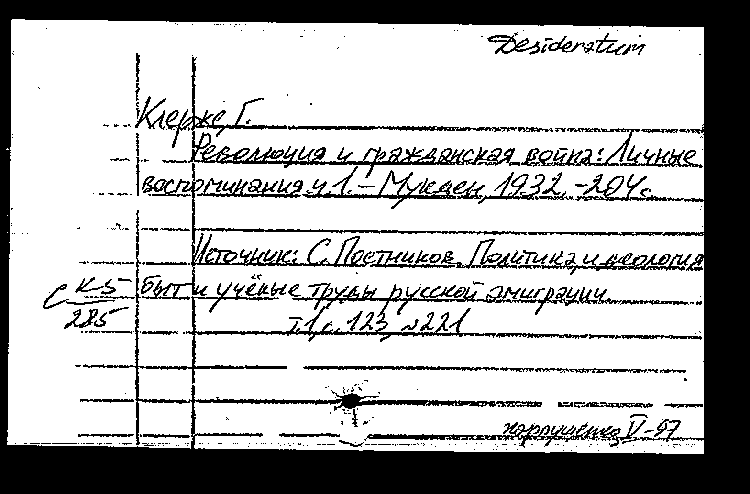 Desideratum
Клерже, Г.
Революция и гражданская война: Личные
воспоминания ч 1. – Мукден, 1932. – 204 с.
Источник: С. Постников. Политика, идеология
С К-5 быт и учёные труды русской эмиграции.
285
т. 1, с. 123, №221
V-97